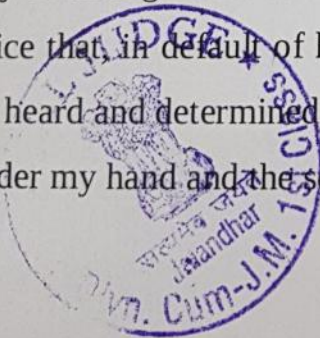 ice that, in default of
heard and determined
der my hand and the s
JUDGE ★
Divn. Cum-J.M. 1st Class
सत्यमेव जयते
Jalandhar